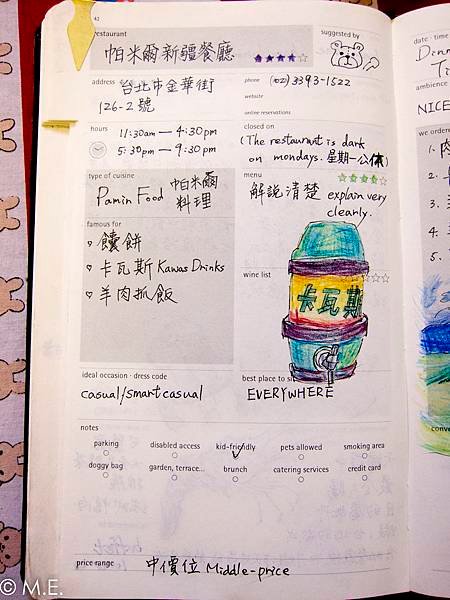 42
restaurant
suggested by
帕米爾新疆餐廳
address
台北市金華街
126-2號
phone
(02) 3393-1522
website
online reservations
hours
11:30am — 4:30pm
5:30pm — 9:30pm
closed on
(The restaurant is dark
on mondays. 星期一公休)
type of cuisine
Pamin Food 帕米爾
料理
menu
解說清楚 explain very
cleanly.
famous for
♡ 饢餅
♡ 卡瓦斯 Kawas Drinks
♡ 羊肉抓飯
wine list
卡瓦斯
ideal occasion · dress code
casual/smart casual
best place to si
EVERYWHERE
notes
parking
disabled access
kid-friendly
pets allowed
smoking area
doggy bag
garden, terrace...
brunch
catering services
credit card
price range
中價位 Middle-price
date · time
Dinn
Ti
ambience
NICE
we ordered
1.
2.
3.
4.
5.
conve
© M.E.